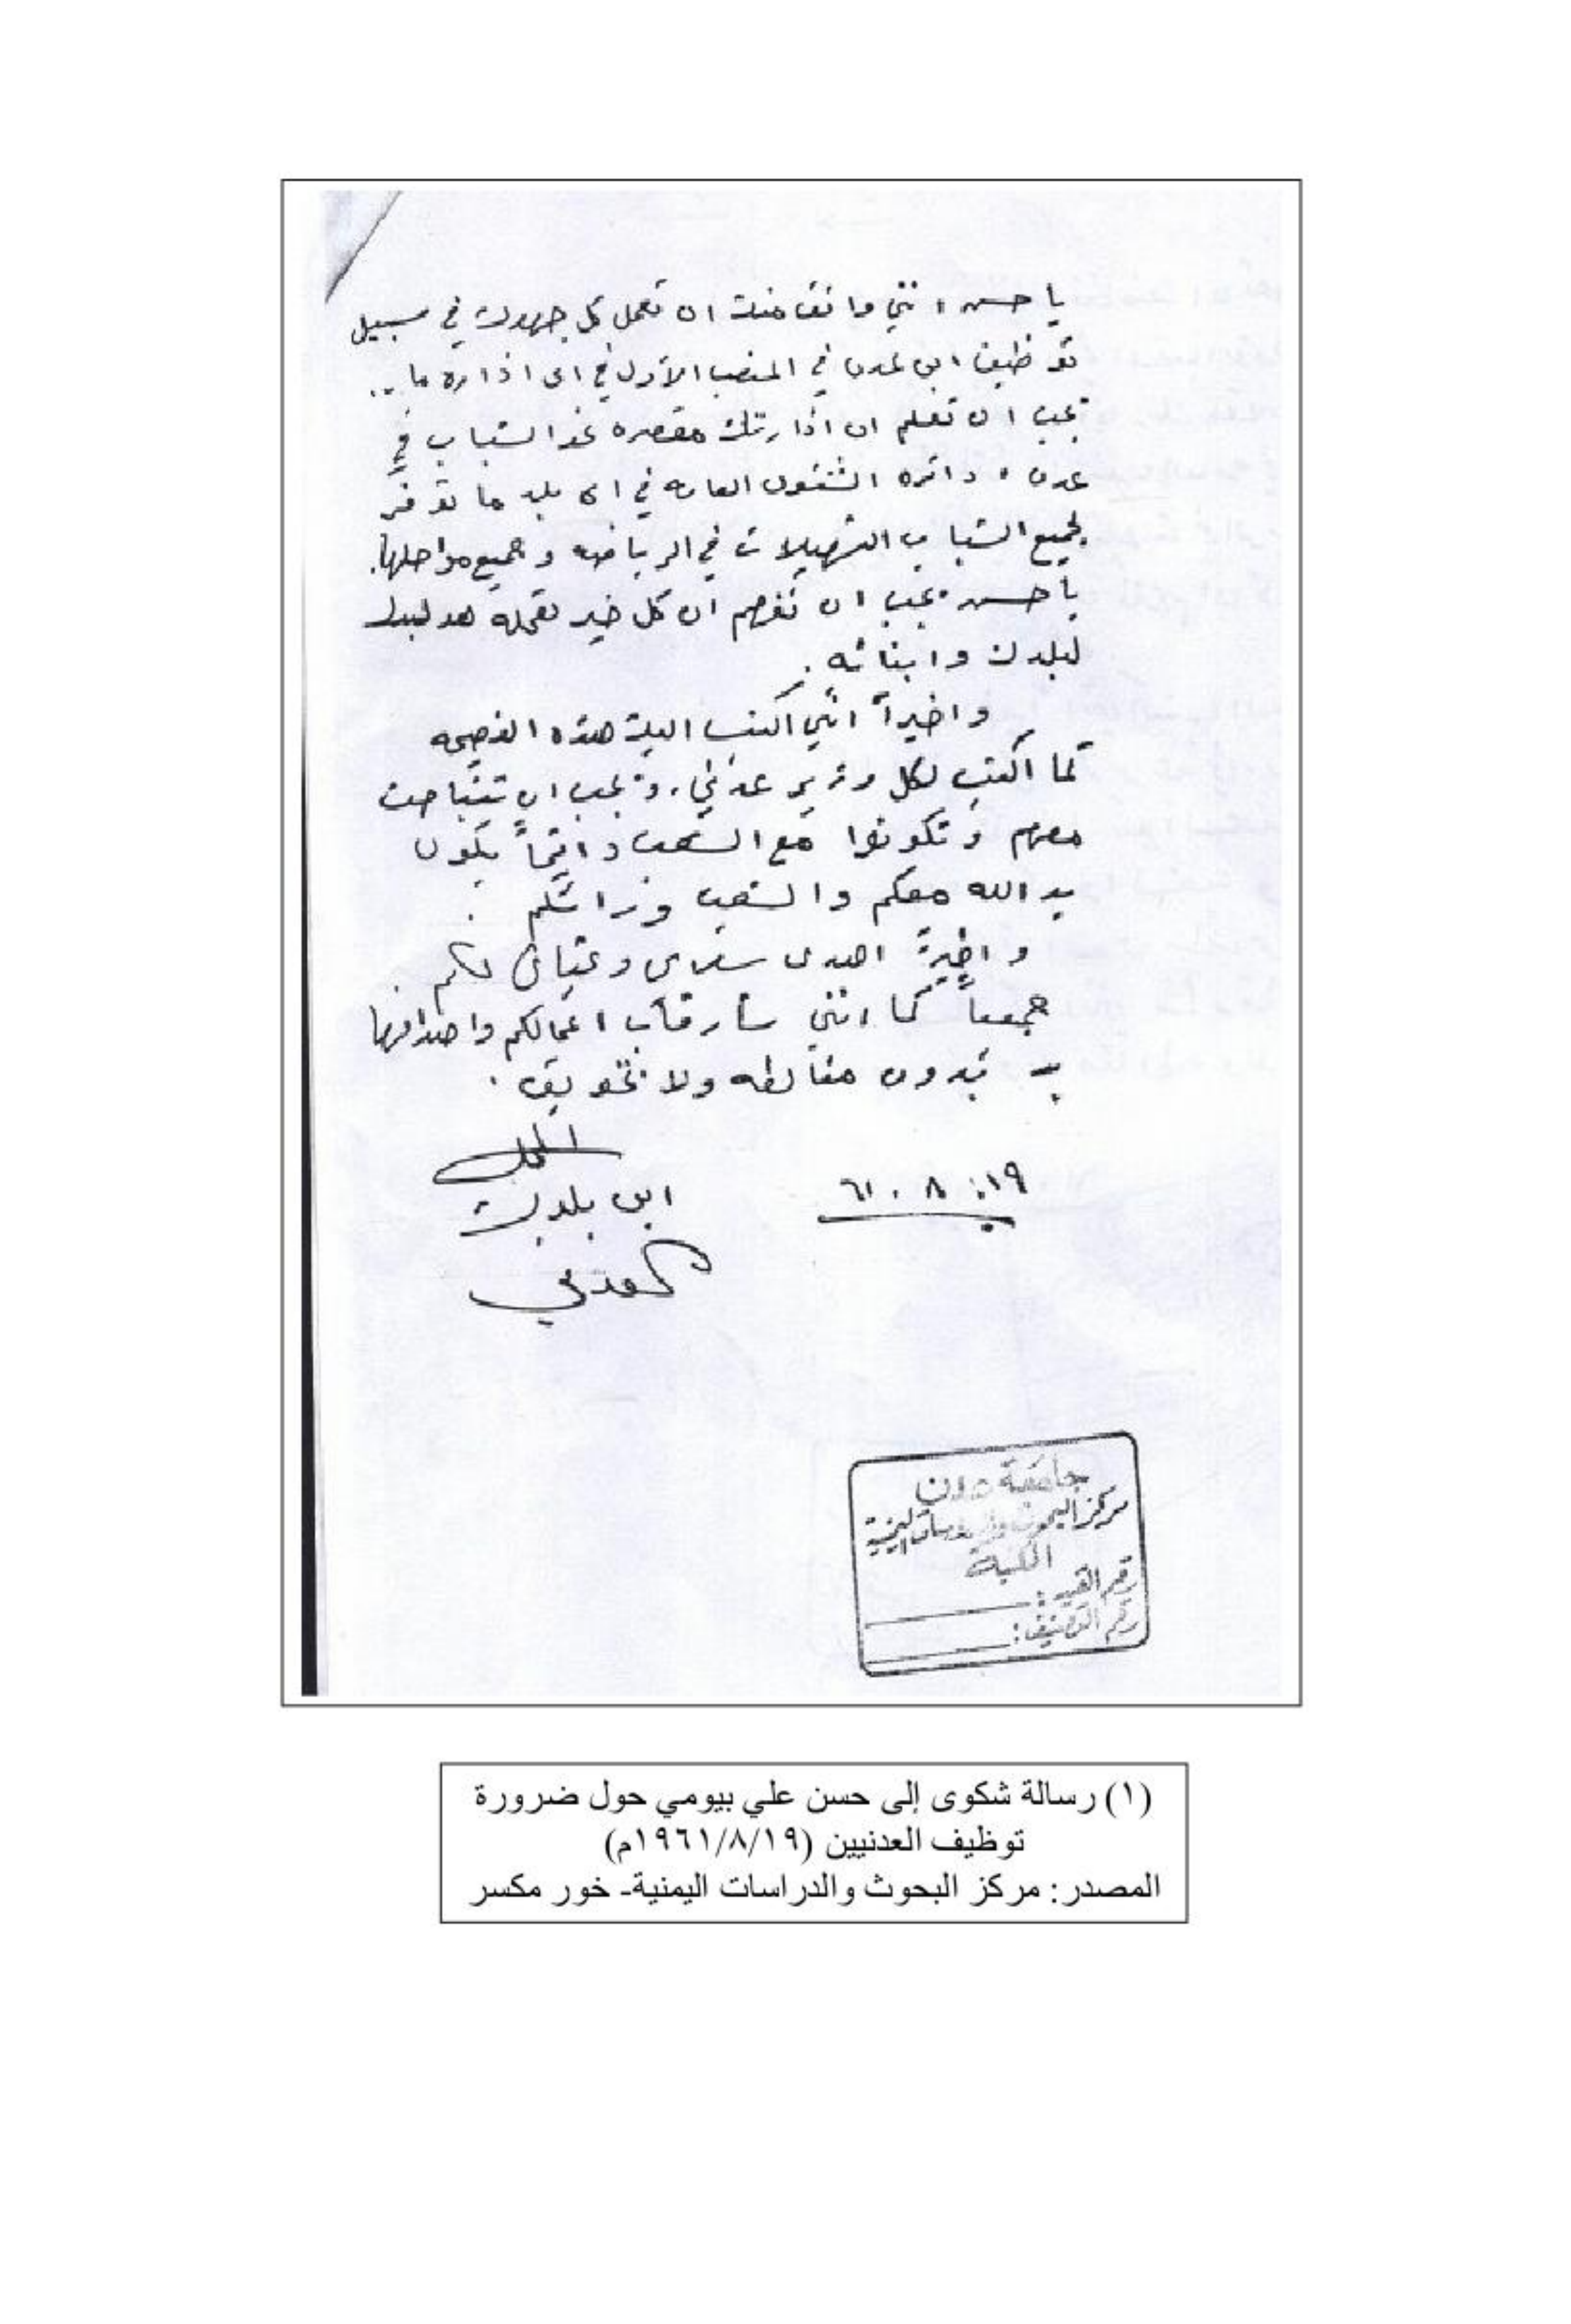 يا حسن انني واثق منك ان تعمل كل جهودك في سبيل
توظيف ابن عدن في المنصب الأول في اى اداره ما ..
يجب ان تعلم ان ادارتك مقصره نحو الشباب في
عدن ، دائره الشئون العامه في اى بلد ما توفر
لجميع الشباب التسهيلات في الرياضه و جميع مراحلها.
يا حسن يجب ان تفهم ان كل خير تعمله هو
لبلدك وابنائه .
واخيراً انني اكتب اليك هذه النصيحه
كما اكتب لكل وزير عدني، ويجب ان تتباحث
معهم وتكونوا مع الشعب دائماً يكون
يد الله معكم والشعب ورائكم .
واخيراً اهدى سلامى وتحياتى لكم .
جميعاً كما انني سأراقب اعمالكم واهدافها
بدون مغالطه ولا تخويف .
المخلص
١٩ . ٨ . ٦١
ابن بلدك
العدني
جامعة عدن
مركز البحوث والدراسات اليمنية
المكتبة
رقم القيد :
رقم التصنيف :
(١) رسالة شكوى إلى حسن علي بيومي حول ضرورة
توظيف العدنيين (١٩٦١/٨/١٩م)
المصدر: مركز البحوث والدراسات اليمنية- خور مكسر